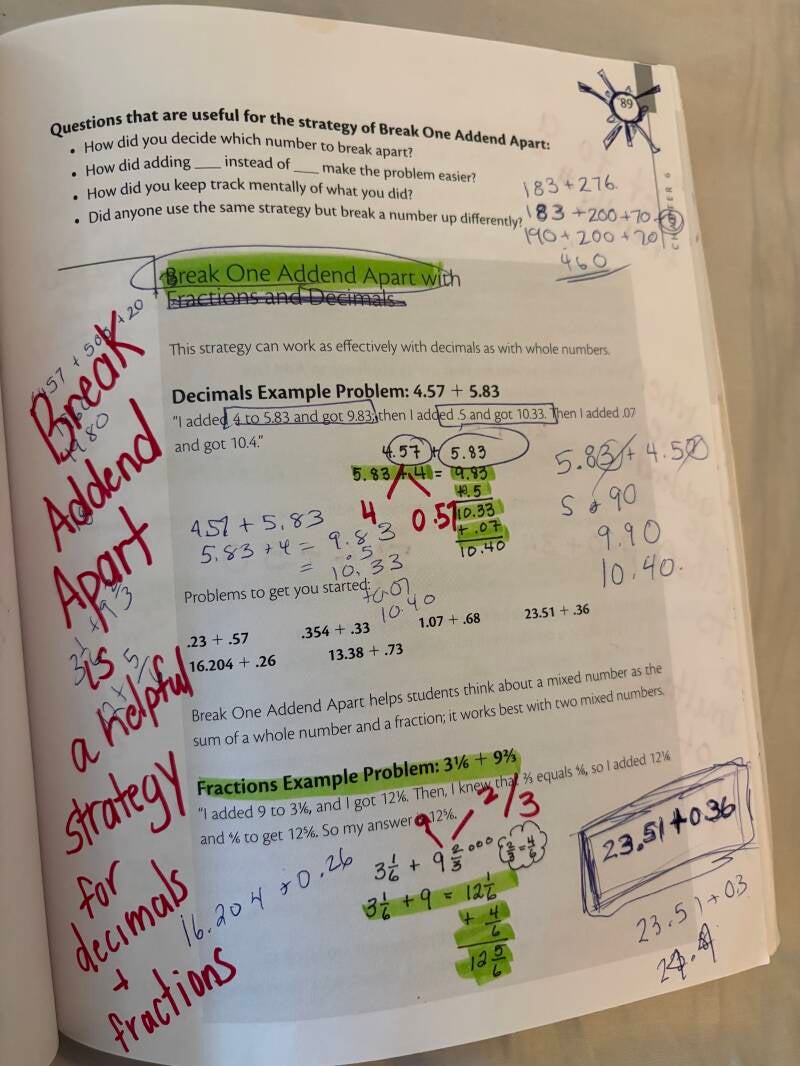 89
CHAPTER 6
Questions that are useful for the strategy of Break One Addend Apart:
• How did you decide which number to break apart?
• How did adding ___ instead of ___ make the problem easier?
• How did you keep track mentally of what you did?
• Did anyone use the same strategy but break a number up differently?
183 + 276
183 + 200 + 70
190 + 200 + 70
460
Break One Addend Apart with
Fractions and Decimals
457 + 500 + 20
This strategy can work as effectively with decimals as with whole numbers.
Decimals Example Problem: 4.57 + 5.83
"I added 4 to 5.83 and got 9.83; then I added .5 and got 10.33. Then I added .07
and got 10.4."
4.57 + 5.83
5.83 + 4 = 9.83
+ .5
10.33
+ .07
10.40
4 0.57
4.57 + 5.83
5.83 + 4 = 9.83
.5
= 10.33
+0.07
10.40
5.83 + 4.57
5 + 90
9.90
10.40.
Problems to get you started:
.23 + .57 .354 + .33 1.07 + .68 23.51 + .36
16.204 + .26 13.38 + .73
Break One Addend Apart helps students think about a mixed number as the
sum of a whole number and a fraction; it works best with two mixed numbers.
Fractions Example Problem: 3⅙ + 9⅔
"I added 9 to 3⅙, and I got 12⅙. Then, I knew that ⅔ equals 4/6, so I added 12⅙
and 4/6 to get 12⅚. So my answer is 12⅚."
9 2/3
3 1/6 + 9 2/3
2/3 = 4/6
3 1/6 + 9 = 12 1/6
+ 4/6
12 5/6
16.204 + 0.26
23.51 + 0.36
23.51 + 03
Break
Addend
Apart
is
a helpful
strategy
for
decimals
+
fractions